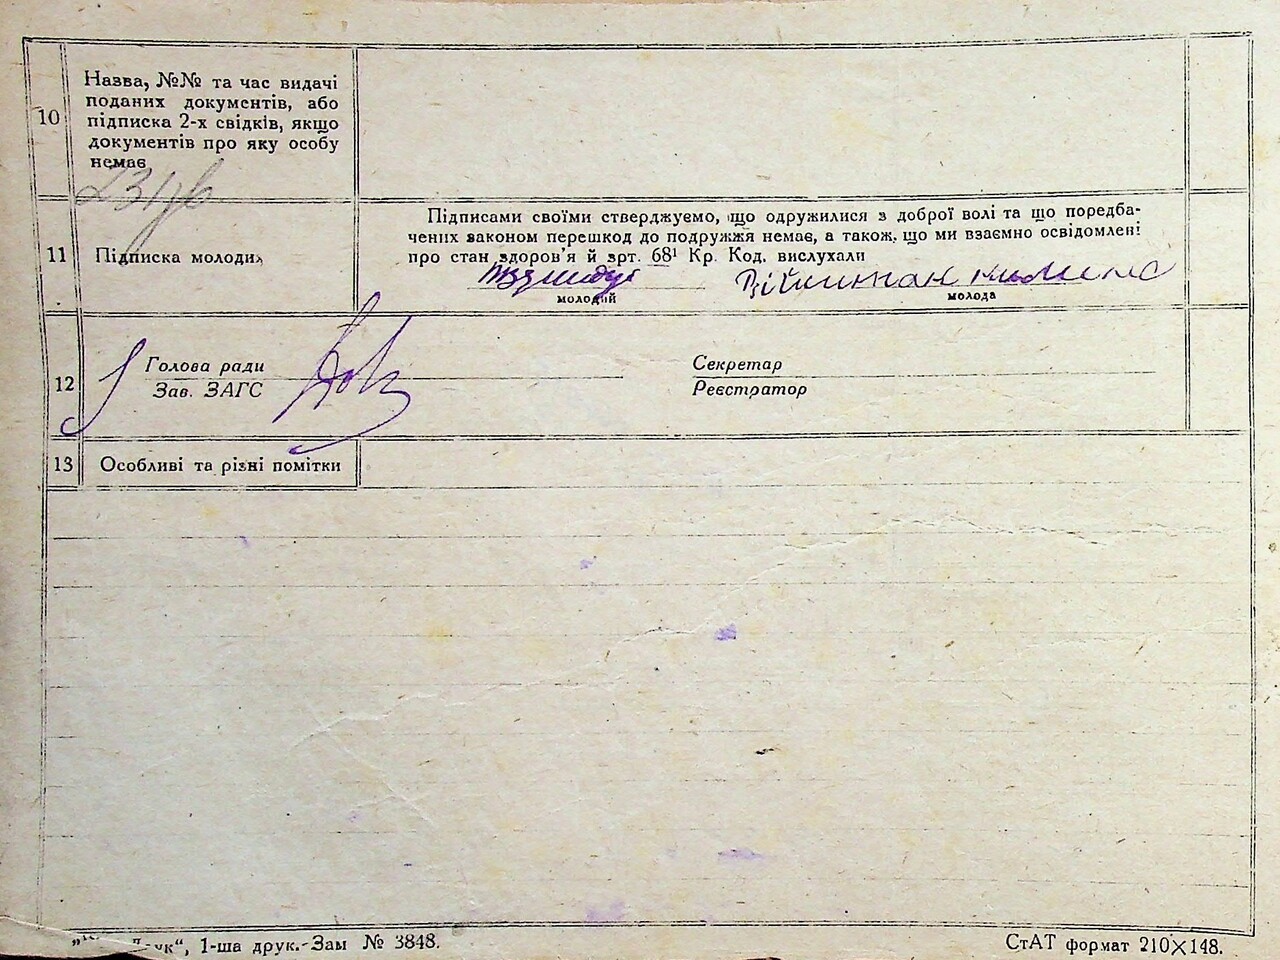 10
Назва, №№ та час видачі
поданих документів, або
підписка 2-х свідків, якщо
документів про яку особу
немає
11
Підписка молодих
Підписами своїми стверджуємо, що одружилися з доброї волі та що поредба-
чених законом перешкод до подружжя немає, а також, що ми взаємно освідомлені
про стан здоров'я й зрт. 68¹ Кр. Код. вислухали
молодий
молода
12
Голова ради
Зав. ЗАГС
Секретар
Реєстратор
13
Особливі та різні помітки
1-ша друк.-Зам № 3848.
СтАТ формат 210×148.